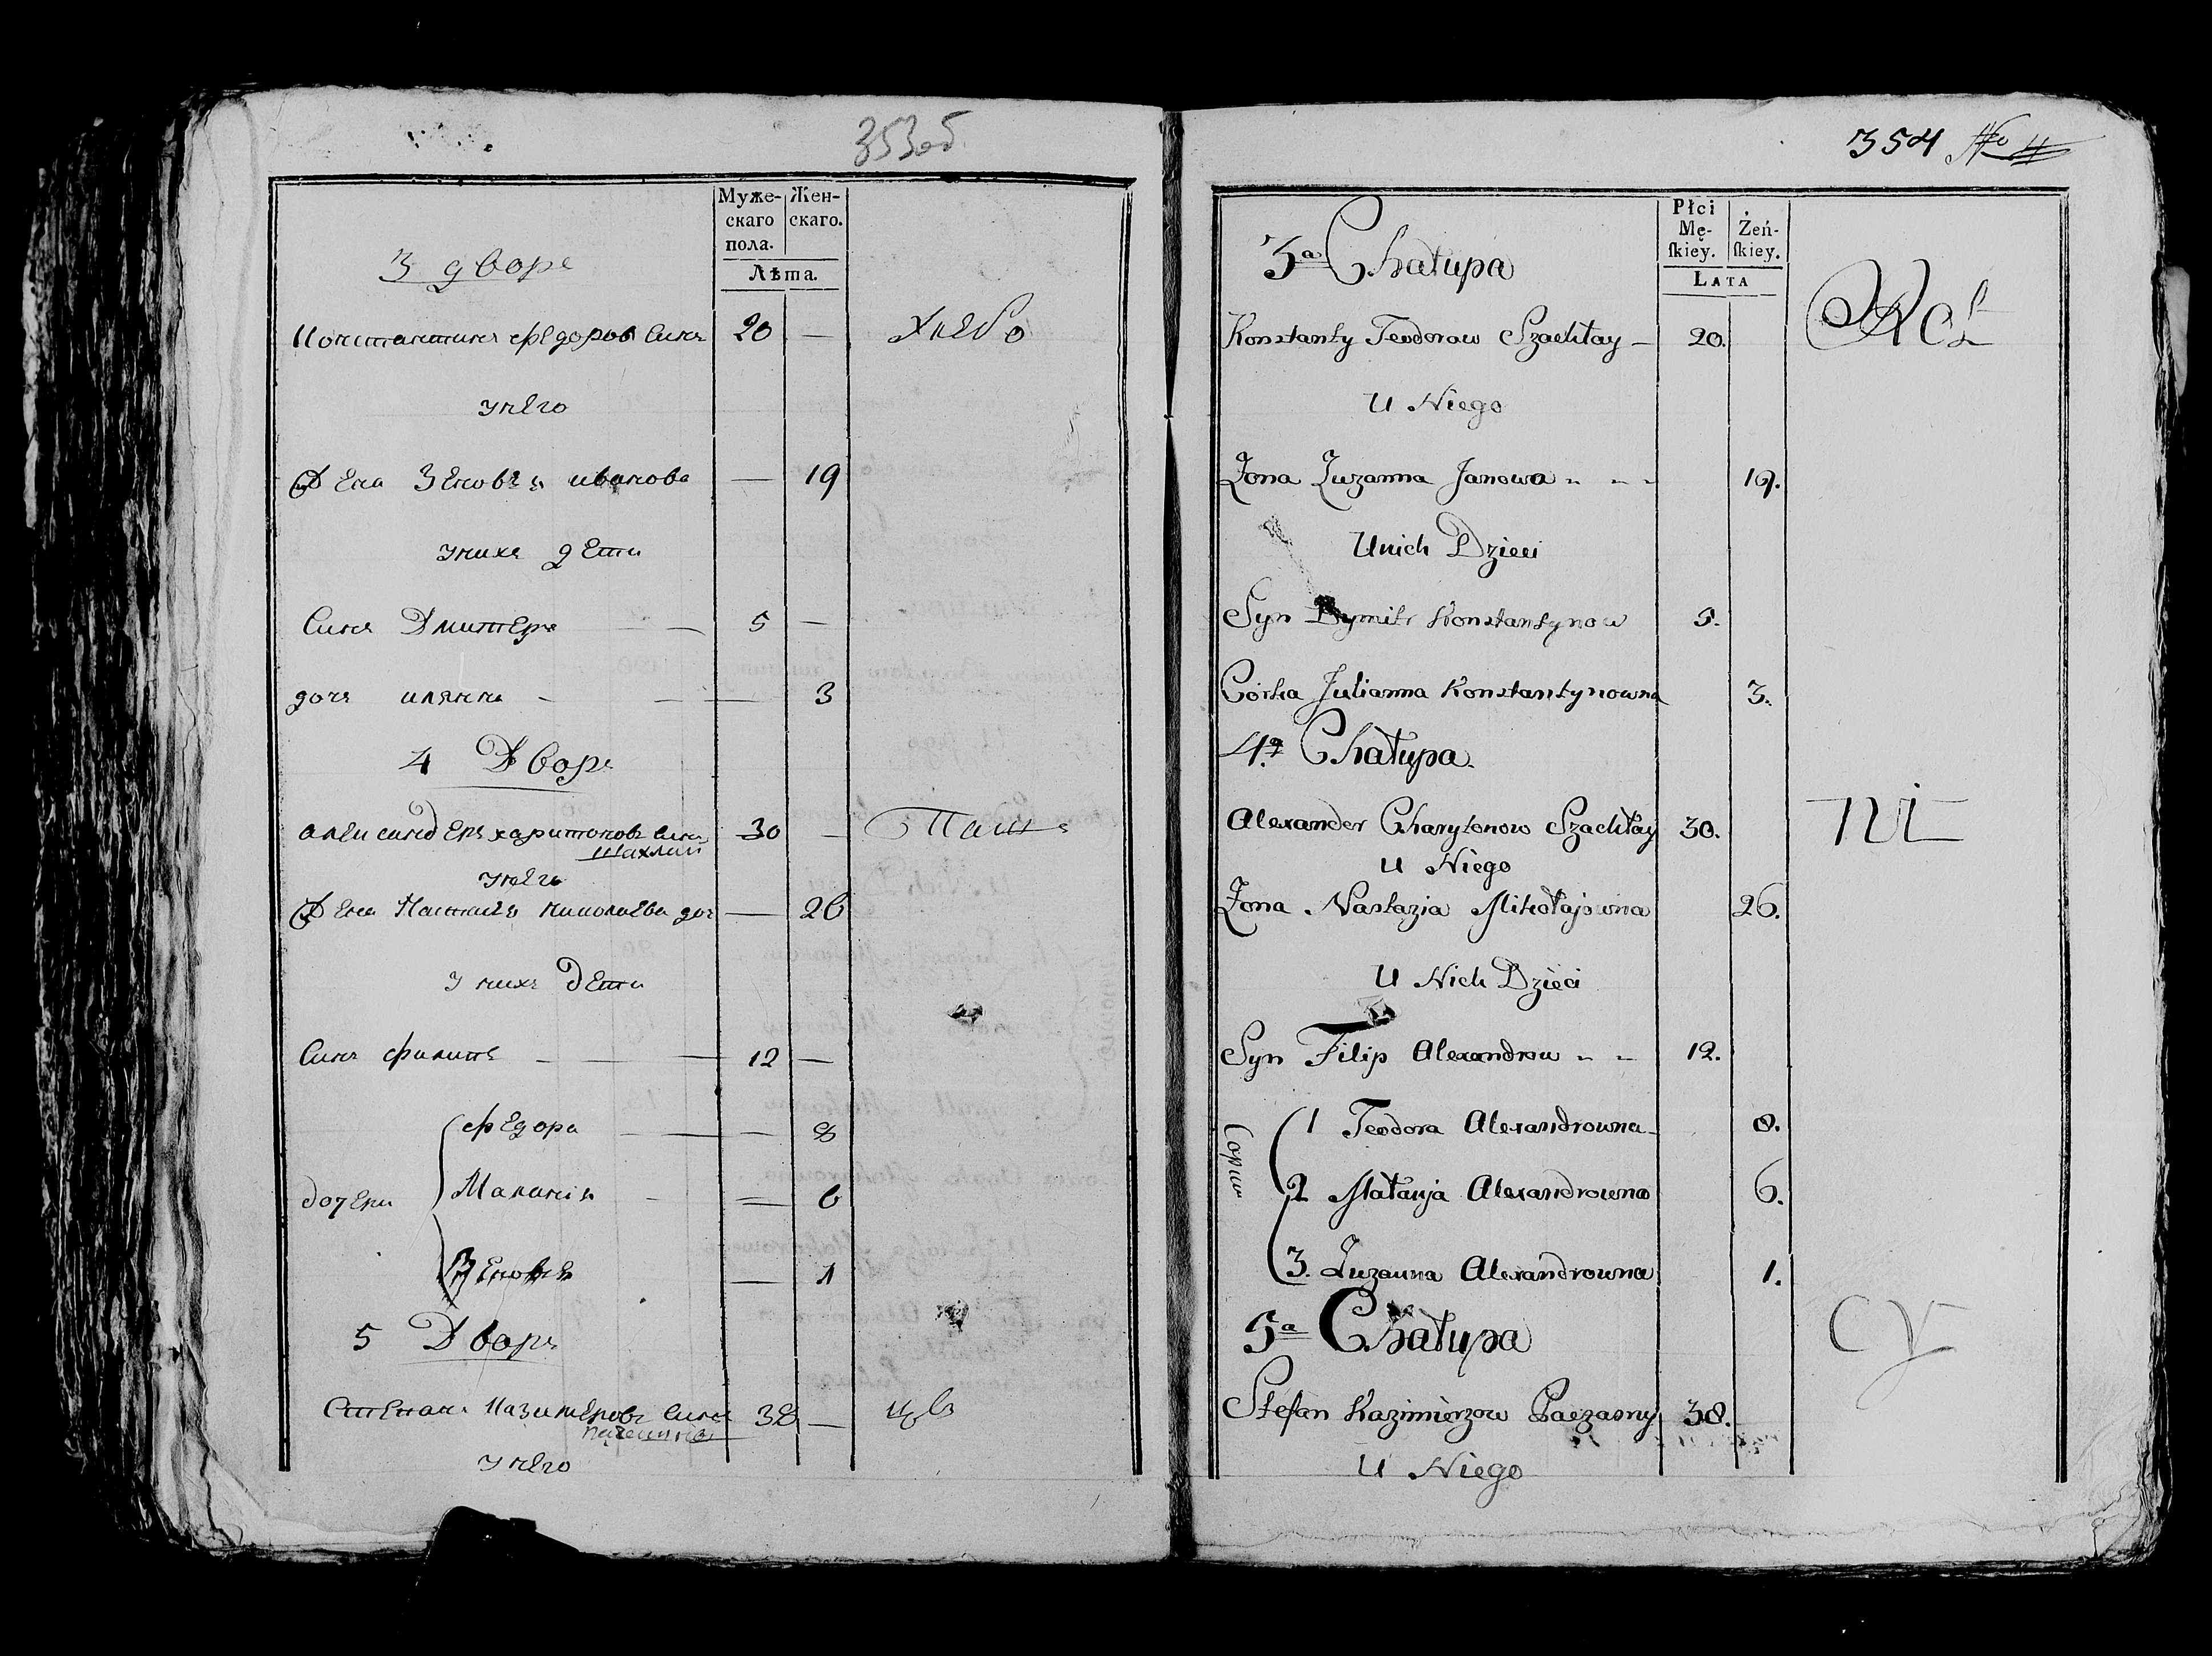 353об
Муже-
скаго
пола.
Жен-
скаго.
Лѣта.
3 дворъ
Константинъ Федоровъ Синъ 20 —
унего
Жена Зеновъя иванова — 19
унихъ дети
Синъ Дмитеръ — 5 —
дочъ илянна — — 3
4 Дворъ
александеръ харитоновъ Синъ 30 —
Шахлай
унего
Жена Настасъя николаева доч — 26
У нихъ дети
Синъ филипъ — 12 —
федора — — 8
дочери Маланія — — 6
Зеновъя — 1
5 Дворъ
Степанъ Казимеровъ Синъ 38 —
унего
354 No 4
Płci
Mę-
skiey.
Żeń-
skiey.
LATA
3a Chałupa
Konstanty Teodorow Szachłay — 20.
U Niego
Żona Zuzanna Janowa 19.
Unich Dzieci
Syn Dymitr Konstantynow 5.
Córka Julianna Konstantynowna 3.
4a Chałupa.
Alexander Charytonow Szachłay 30.
U Niego
Żona Nastazia Mikołajowna 26.
U Nich Dzieci
Syn Filip Alexandrow 12.
Corki
1 Teodora Alexandrowna 8.
2 Małanja Alexandrowna 6.
3. Zuzanna Alexandrowna 1.
5a Chałupa
Stefan Kazimierzow Paczasny 38.
U Niego